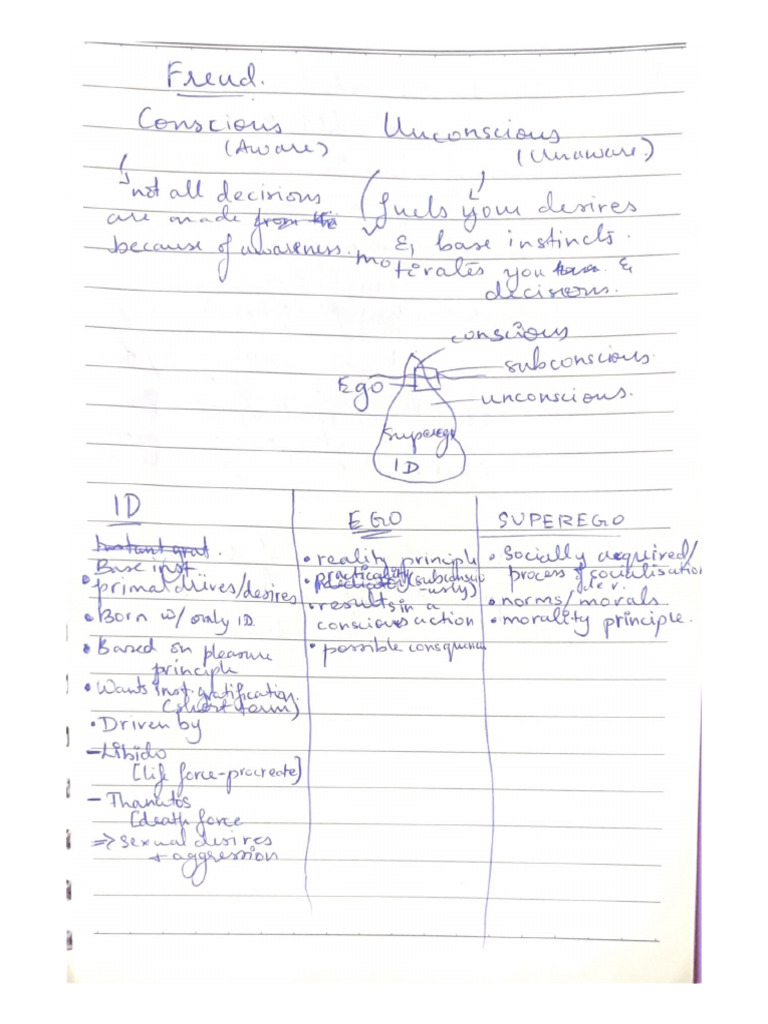 Freud.
Conscious Unconscious
(Aware) (Unaware)
not all decisions fuels your desires
are made & base instincts.
because of awareness. motivates you &
decisions.
conscious
subconscious.
Ego
unconscious.
Superego
ID
ID
Instant grat.
Base inst
• primal drives/desires
• Born w/ only ID.
• Based on pleasure
principle
• Wants inst. gratification.
(short term)
• Driven by
- Libido
[life force - procreate]
- Thanatos
[death force
=> sexual desires
+ aggression
EGO
• reality principle
• practicality (subconscio
-usly)
• results in a
conscious action
• possible consequences
SUPEREGO
• Socially acquired/
process of socialisation
• norms/morals
• morality principle.